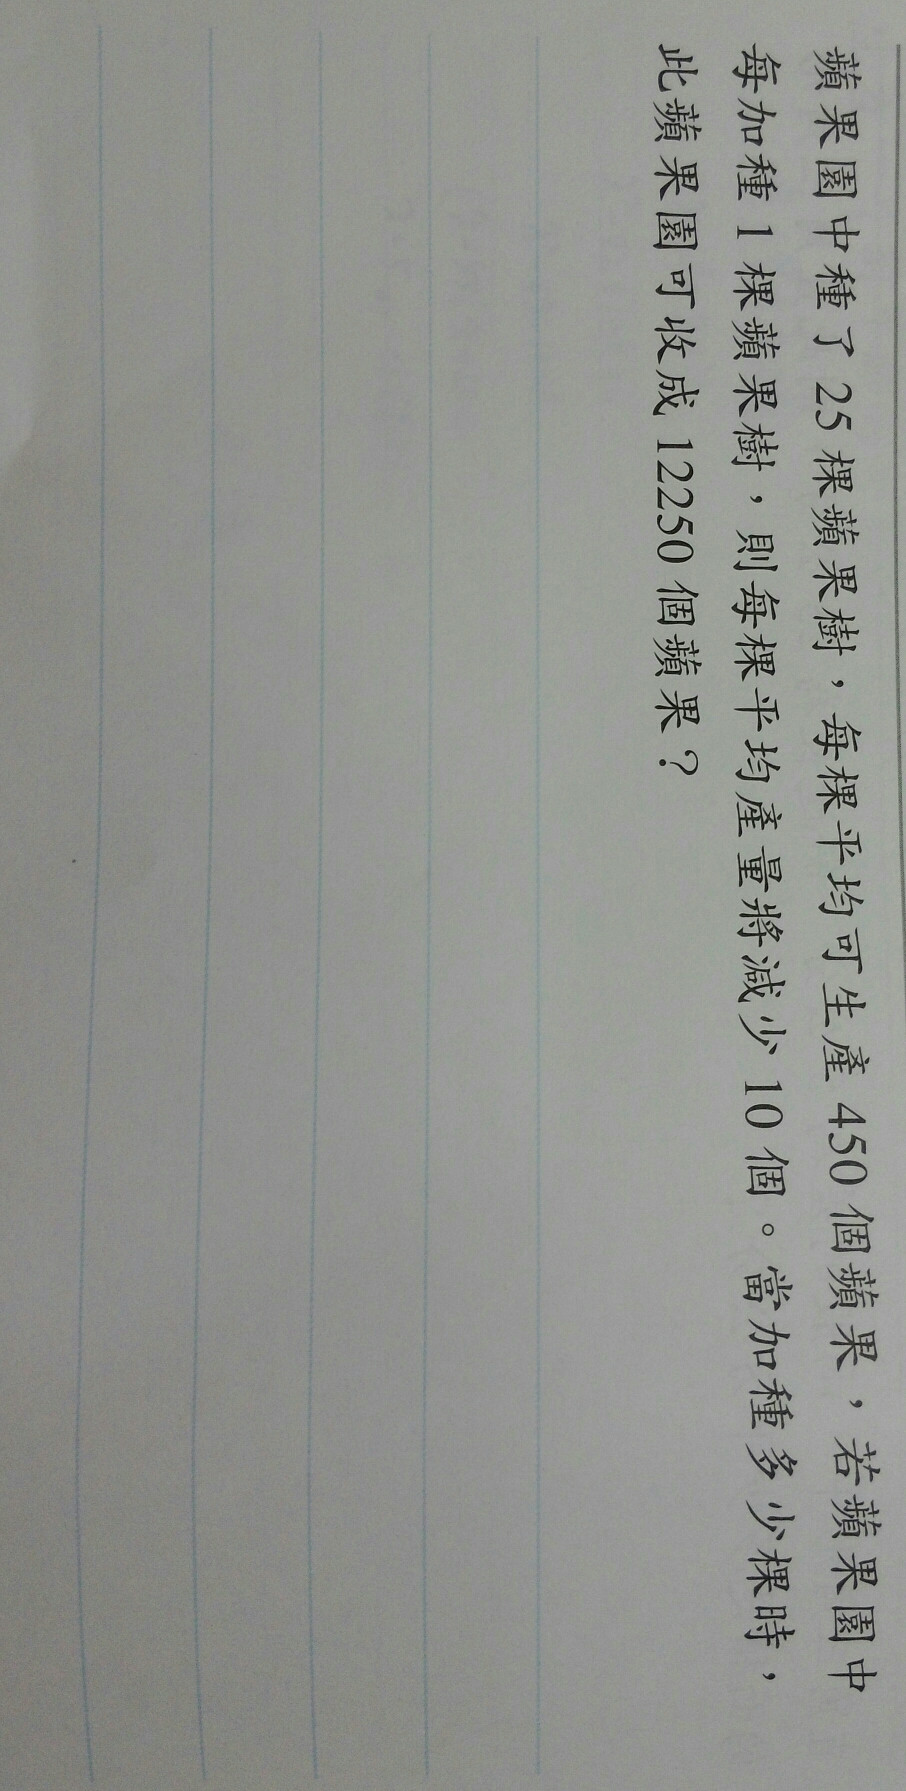 蘋果園中種了 25 棵蘋果樹，每棵平均可生產 450 個蘋果，若蘋果園中
每加種 1 棵蘋果樹，則每棵平均產量將減少 10 個。當加種多少棵時，
此蘋果園可收成 12250 個蘋果？